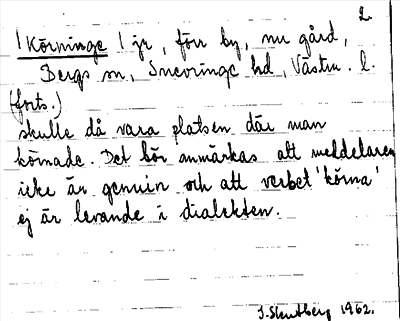 2.
! Körninge ! jr, förr by, nu gård,
Bergs sn, Snevringe hd, Västm. l.
(forts.)
skulle då vara platsen där man
körnade. Det bör anmärkas att meddelaren
icke är genuin och att verbet 'körna'
ej är levande i dialekten.
1962.